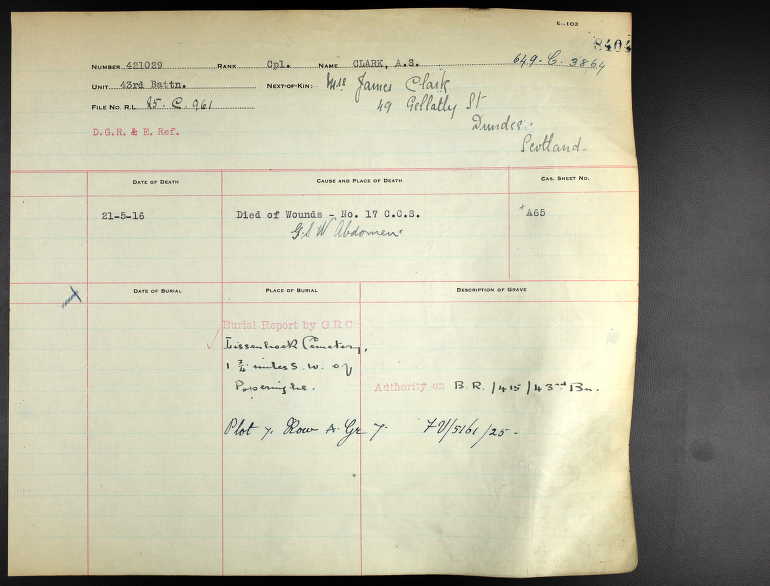 E.-103
8404
NUMBER 421029 RANK Cpl. NAME CLARK, A.S. 649-C-3864
UNIT 43rd Battn. NEXT-OF-KIN: Mrs James Clark
FILE NO. R.L. 25-C-961 49 Gellatly St
Dundee
D.G.R. & E. Ref.
Scotland.
DATE OF DEATH CAUSE AND PLACE OF DEATH CAS. SHEET NO.
21-5-16 Died of Wounds - No. 17 C.C.S. A65
G.S.W Abdomen
DATE OF BURIAL PLACE OF BURIAL DESCRIPTION OF GRAVE
Burial Report by G R C
Lissenhoek Cemetery,
1 3/4 miles S.W. of
Poperinghe. Authority on B.R./415/43rd Bn.
Plot 7. Row A. Gr 7.